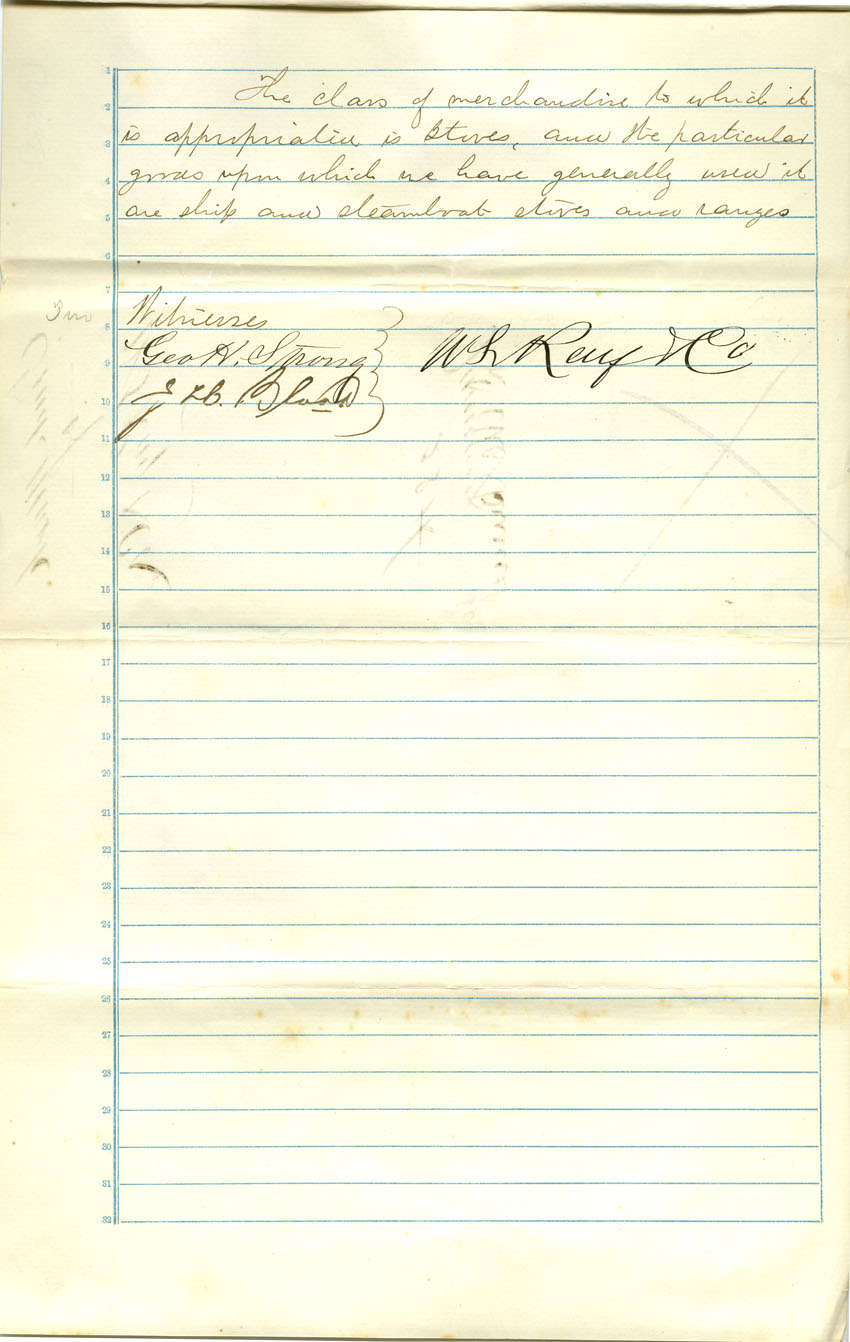 The class of merchandise to which it
is appropriated is Stoves, and the particular
goods upon which we have generally used it
are ship and steamboat stoves and ranges
Witnesses
Geo H. Strong
W S Ray & Co
J. H. Blood
1
2
3
4
5
6
7
8
9
10
11
12
13
14
15
16
17
18
19
20
21
22
23
24
25
26
27
28
29
30
31
32